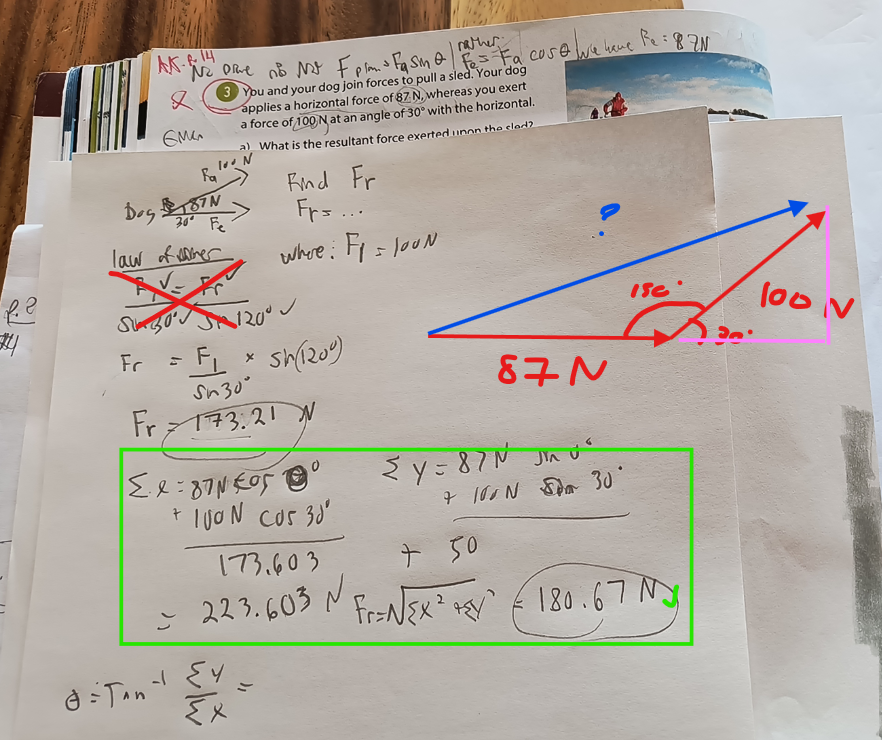 Fplan = Fa sin θ | rather: Fe = Fa cos θ | We have Fe: 87N
3 You and your dog join forces to pull a sled. Your dog
applies a horizontal force of 87 N, whereas you exert
a force of 100 N at an angle of 30° with the horizontal.
a) What is the resultant force exerted upon the sled?
Fa 100 N
Find Fr
Dog 87N
30° Fe
Fr = ...
where: F1 = 100N
law of
F1 = Fr
sin 30° sin 120°
Fr = F1 × sin(120°)
sin 30°
Fr = 173.21 N
?
150°
100 N
30°
87 N
Σx = 87N cos 0°
+ 100N cos 30°
173.603
Σy = 87N sin 0°
+ 100N sin 30°
+ 50
= 223.603 N
Fr = √Σx² + Σy² = 180.67 N
θ = Tan⁻¹ Σy =
Σx